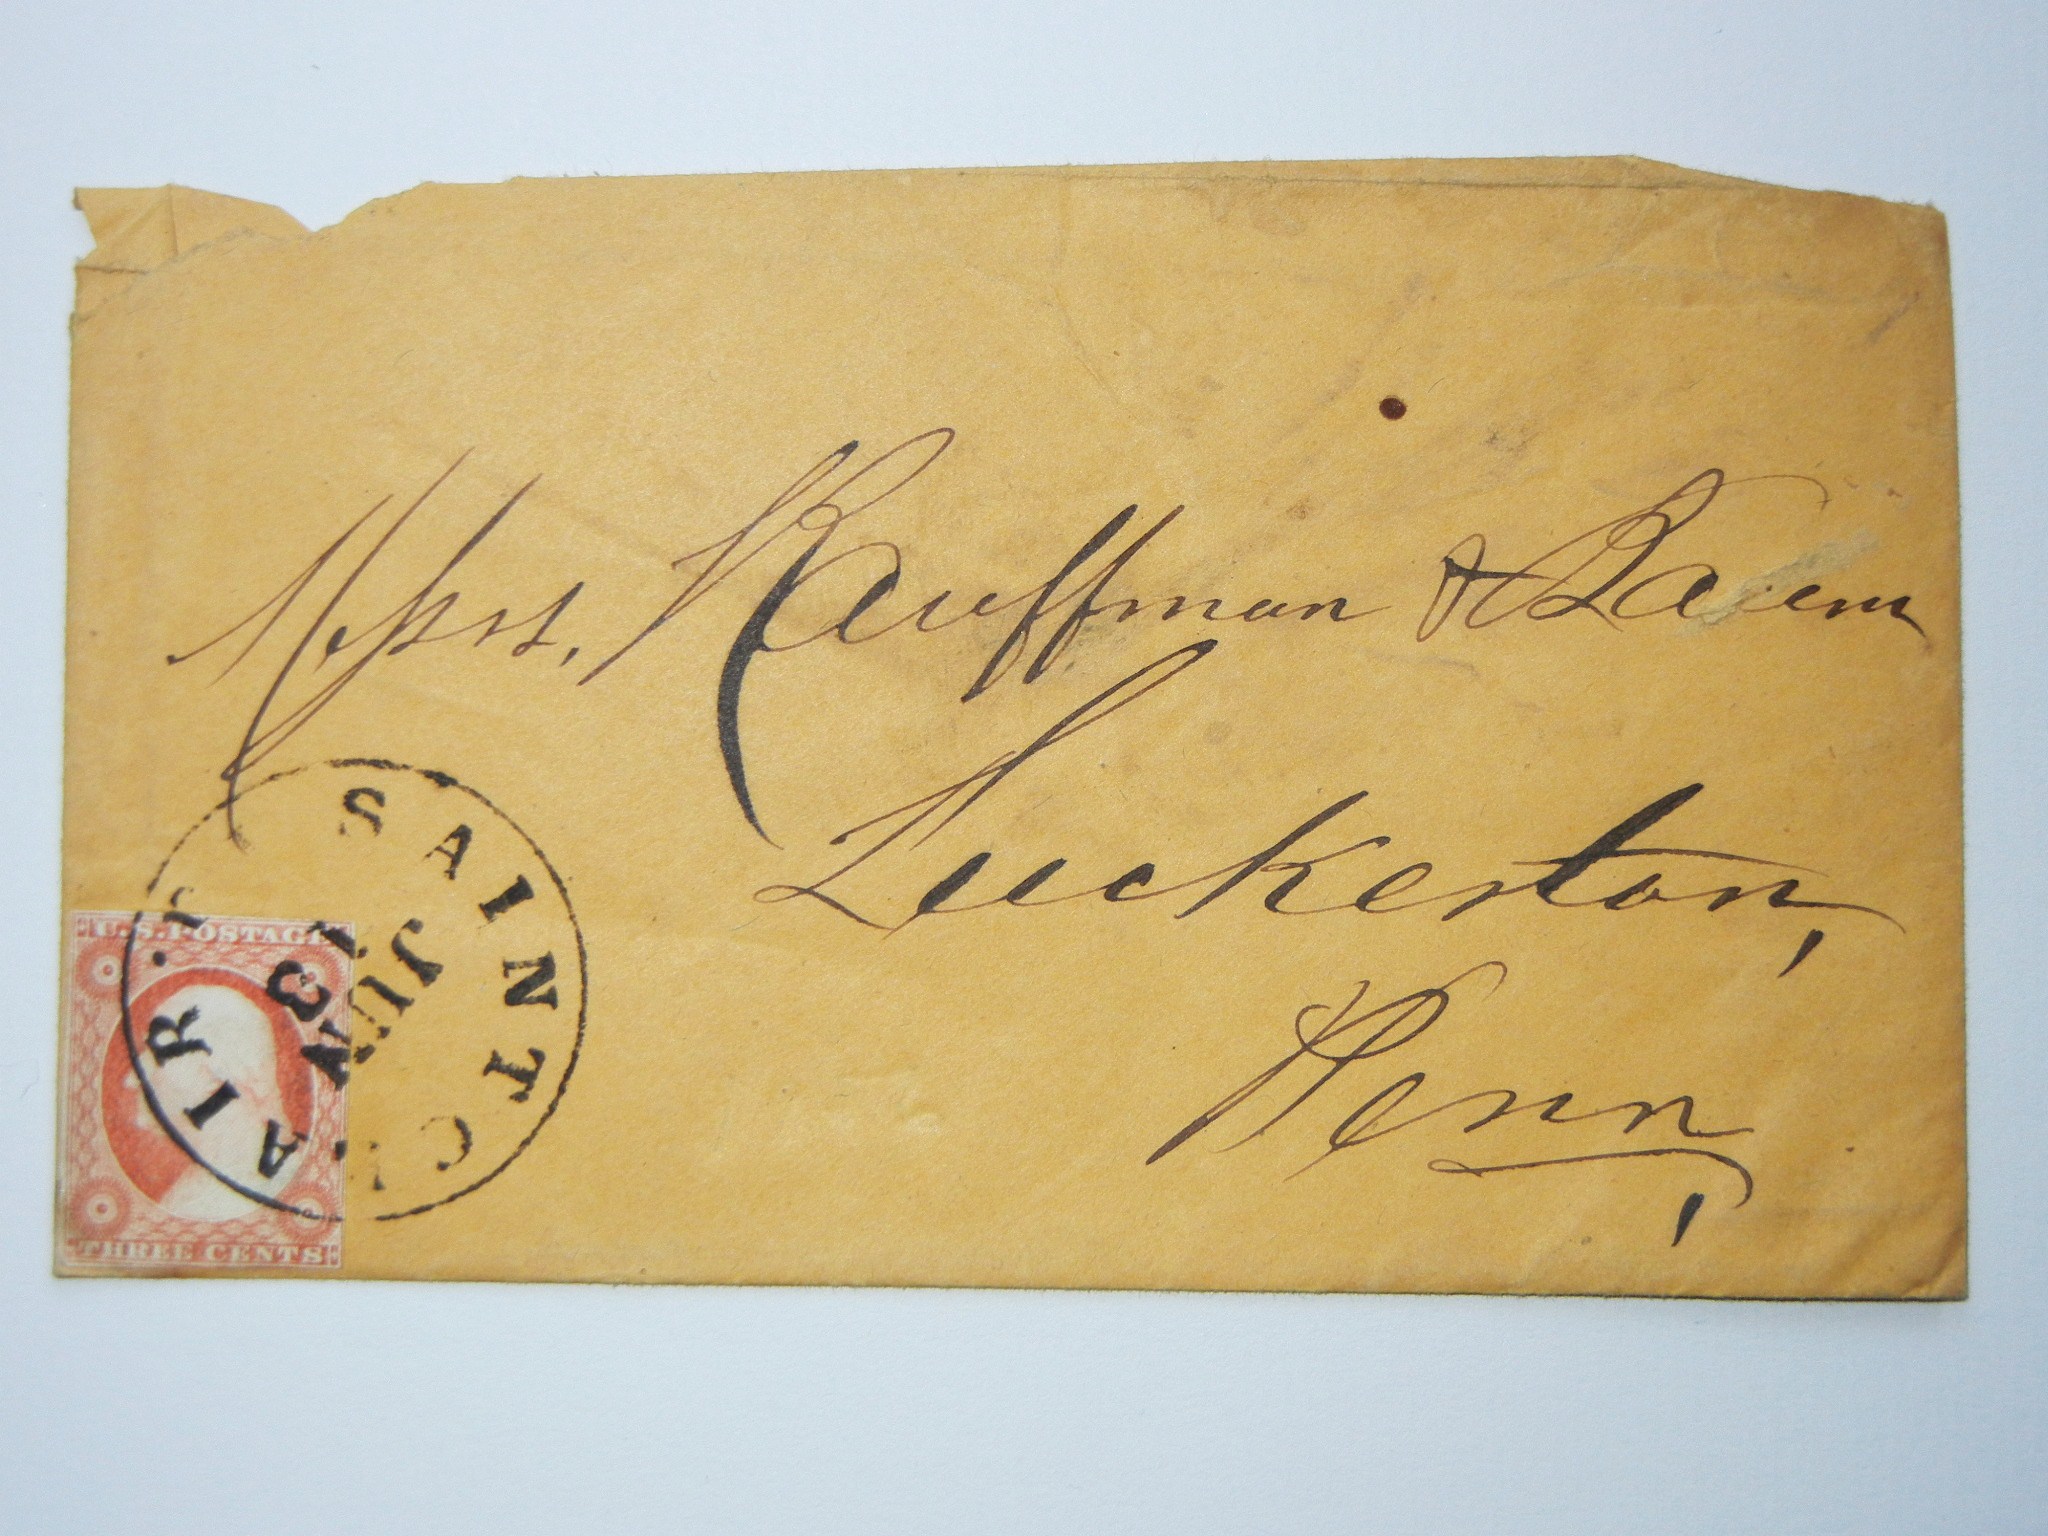 Messrs. Kauffman & Baum
Tuckerton,
Penn,
SAINT CLAIR. P
JUN
13
U.S. POSTAGE
THREE CENTS